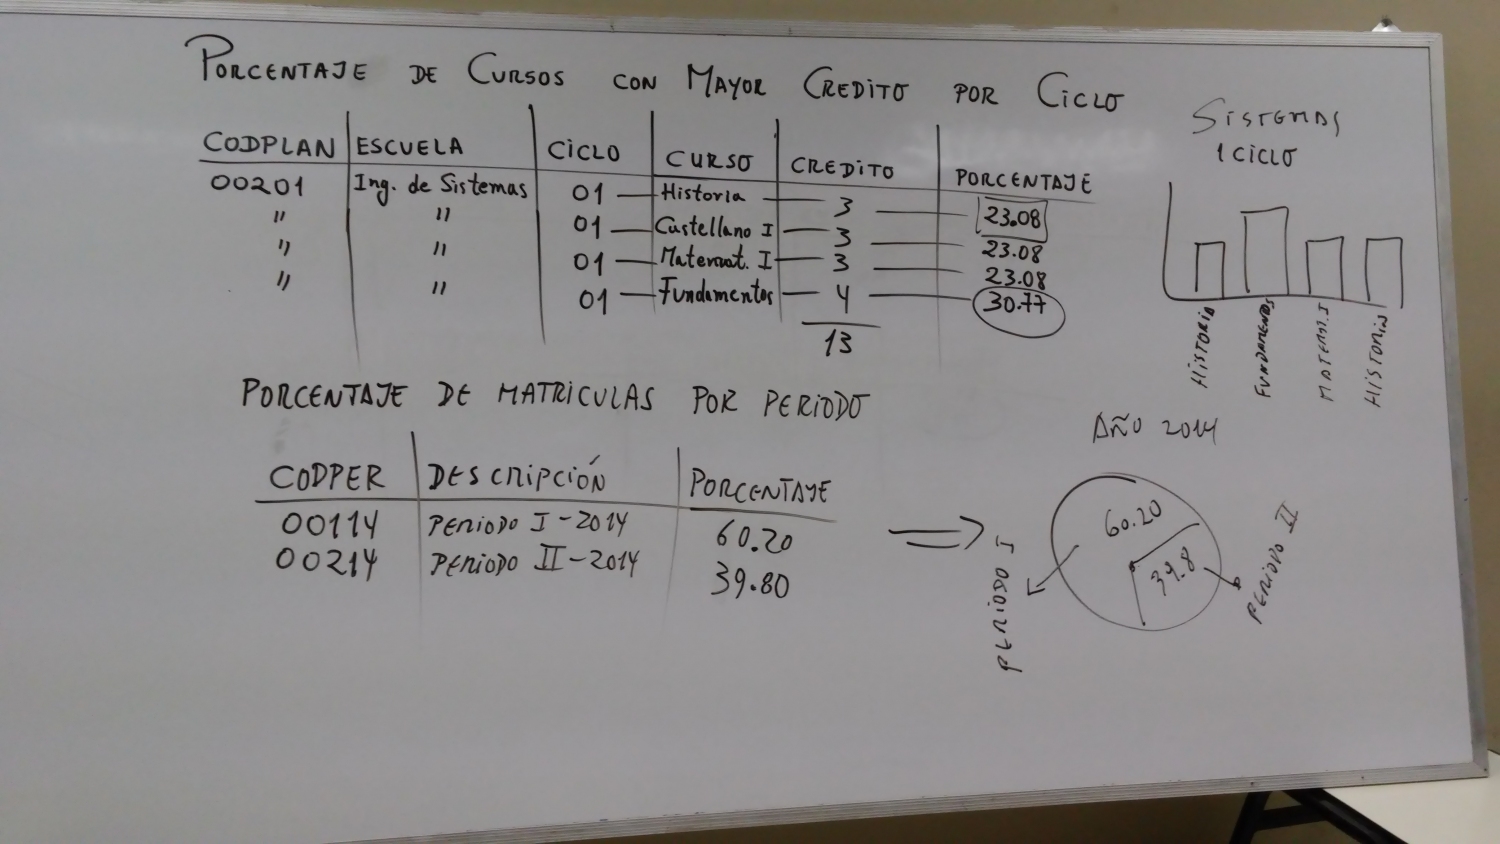 PORCENTAJE DE CURSOS CON MAYOR CREDITO POR CICLO
CODPLAN ESCUELA CICLO CURSO CREDITO PORCENTAJE
00201 Ing. de Sistemas 01 Historia 3 23.08
" " 01 Castellano I 3 23.08
" " 01 Matemat. I 3 23.08
" " 01 Fundamentos 4 30.77
13
SISTEMAS
1 CICLO
HISTORIA
FUNDAMENTOS
MATEM. I
HISTORIA
PORCENTAJE DE MATRICULAS POR PERIODO
CODPER DESCRIPCIÓN PORCENTAJE
00114 PERIODO I-2014 60.20
00214 PERIODO II-2014 39.80
AÑO 2014
60.20
39.8
PERIODO I
PERIODO II